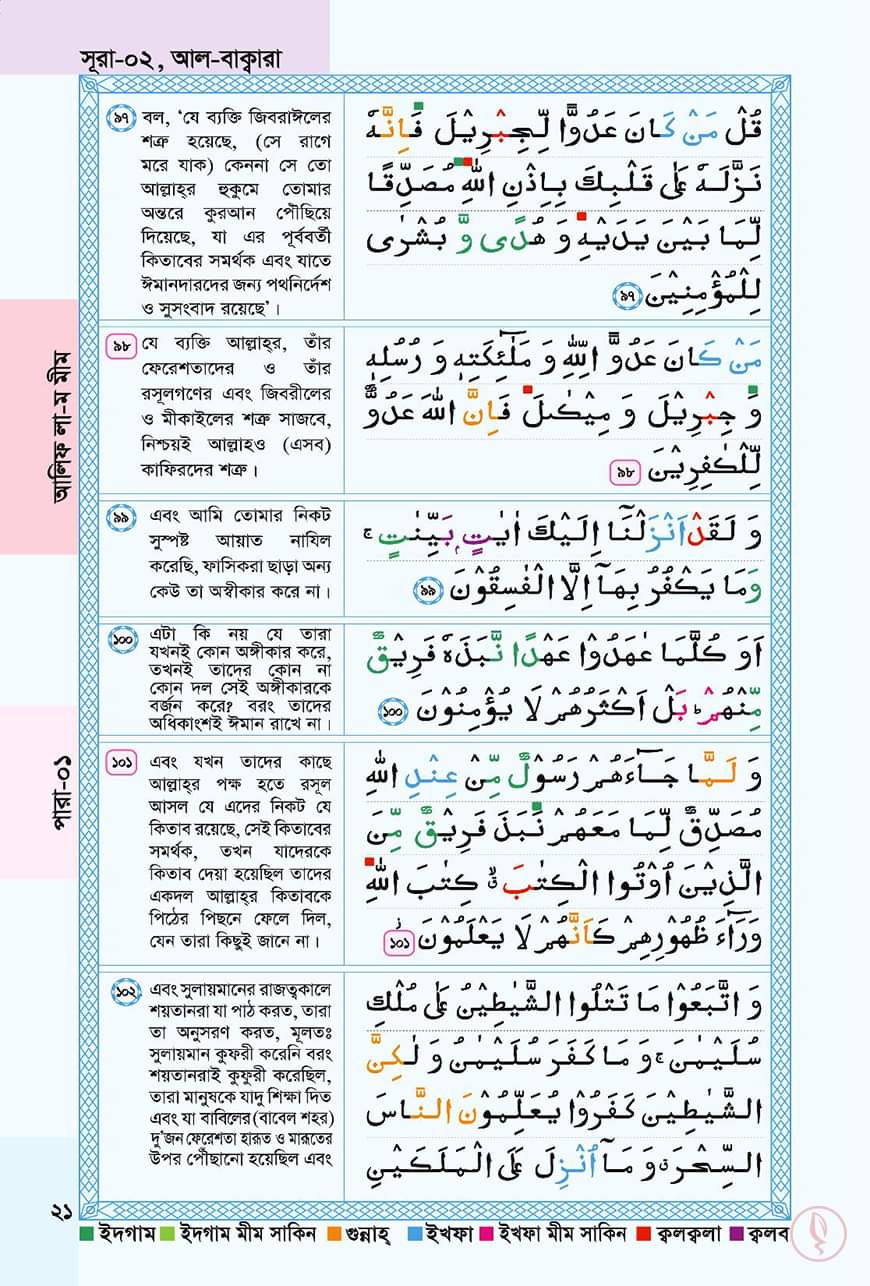 সূরা-০২, আল-বাক্বারা
৯৭ বল, ‘যে ব্যক্তি জিবরাঈলের
শত্রু হয়েছে, (সে রাগে
মরে যাক) কেননা সে তো
আল্লাহ্‌র হুকুমে তোমার
অন্তরে কুরআন পৌঁছিয়ে
দিয়েছে, যা এর পূর্ববর্তী
কিতাবের সমর্থক এবং যাতে
ঈমানদারদের জন্য পথনির্দেশ
ও সুসংবাদ রয়েছে’।
قُلْ مَنْ كَانَ عَدُوًّا لِّجِبْرِيْلَ فَاِنَّهٗ
نَزَّلَهٗ عَلٰى قَلْبِكَ بِاِذْنِ اللّٰهِ مُصَدِّقًا
لِّمَا بَيْنَ يَدَيْهِ وَ هُدًى وَّ بُشْرٰى
لِلْمُؤْمِنِيْنَ ৯৭
৯৮ যে ব্যক্তি আল্লাহ্‌র, তাঁর
ফেরেশতাদের ও তাঁর
রসূলগণের এবং জিবরীলের
ও মীকাইলের শত্রু সাজবে,
নিশ্চয়ই আল্লাহও (এসব)
কাফিরদের শত্রু।
مَنْ كَانَ عَدُوًّا لِّلّٰهِ وَ مَلٰٓئِكَتِهٖ وَ رُسُلِهٖ
وَ جِبْرِيْلَ وَ مِيْكٰىلَ فَاِنَّ اللّٰهَ عَدُوٌّ
لِّلْكٰفِرِيْنَ ৯৮
৯৯ এবং আমি তোমার নিকট
সুস্পষ্ট আয়াত নাযিল
করেছি, ফাসিকরা ছাড়া অন্য
কেউ তা অস্বীকার করে না।
وَ لَقَدْ اَنْزَلْنَاۤ اِلَيْكَ اٰيٰتٍۭ بَيِّنٰتٍ ۚ
وَمَا يَكْفُرُ بِهَاۤ اِلَّا الْفٰسِقُوْنَ ৯৯
১০০ এটা কি নয় যে তারা
যখনই কোন অঙ্গীকার করে,
তখনই তাদের কোন না
কোন দল সেই অঙ্গীকারকে
বর্জন করে? বরং তাদের
অধিকাংশই ঈমান রাখে না।
اَوَ كُلَّمَا عٰهَدُوْا عَهْدًا نَّبَذَهٗ فَرِيْقٌ
مِّنْهُمْ ؕ بَلْ اَكْثَرُهُمْ لَا يُؤْمِنُوْنَ ১০০
১০১ এবং যখন তাদের কাছে
আল্লাহ্‌র পক্ষ হতে রসূল
আসল যে এদের নিকট যে
কিতাব রয়েছে, সেই কিতাবের
সমর্থক, তখন যাদেরকে
কিতাব দেয়া হয়েছিল তাদের
একদল আল্লাহ্‌র কিতাবকে
পিঠের পিছনে ফেলে দিল,
যেন তারা কিছুই জানে না।
وَ لَمَّا جَآءَهُمْ رَسُوْلٌ مِّنْ عِنْدِ اللّٰهِ
مُصَدِّقٌ لِّمَا مَعَهُمْ نَبَذَ فَرِيْقٌ مِّنَ
الَّذِيْنَ اُوْتُوا الْكِتٰبَ ۙ كِتٰبَ اللّٰهِ
وَرَآءَ ظُهُوْرِهِمْ كَاَنَّهُمْ لَا يَعْلَمُوْنَ ১০১
১০২ এবং সুলায়মানের রাজত্বকালে
শয়তানরা যা পাঠ করত, তারা
তা অনুসরণ করত, মূলতঃ
সুলায়মান কুফরী করেনি বরং
শয়তানরাই কুফুরী করেছিল,
তারা মানুষকে যাদু শিক্ষা দিত
এবং যা বাবিলের (বাবেল শহর)
দু’জন ফেরেশতা হারূত ও মারূতের
উপর পৌঁছানো হয়েছিল এবং
وَ اتَّبَعُوْا مَا تَتْلُوا الشَّيٰطِيْنُ عَلٰى مُلْكِ
سُلَيْمٰنَ ۚ وَ مَا كَفَرَ سُلَيْمٰنُ وَ لٰكِنَّ
الشَّيٰطِيْنَ كَفَرُوْا يُعَلِّمُوْنَ النَّاسَ
السِّحْرَ ۗ وَ مَاۤ اُنْزِلَ عَلَى الْمَلَكَيْنِ
আলিফ লা-ম মীম
পারা-০১
২১
ইদগাম ইদগাম মীম সাকিন গুন্নাহ্ ইখফা ইখফা মীম সাকিন ক্বলক্বলা ক্বলব